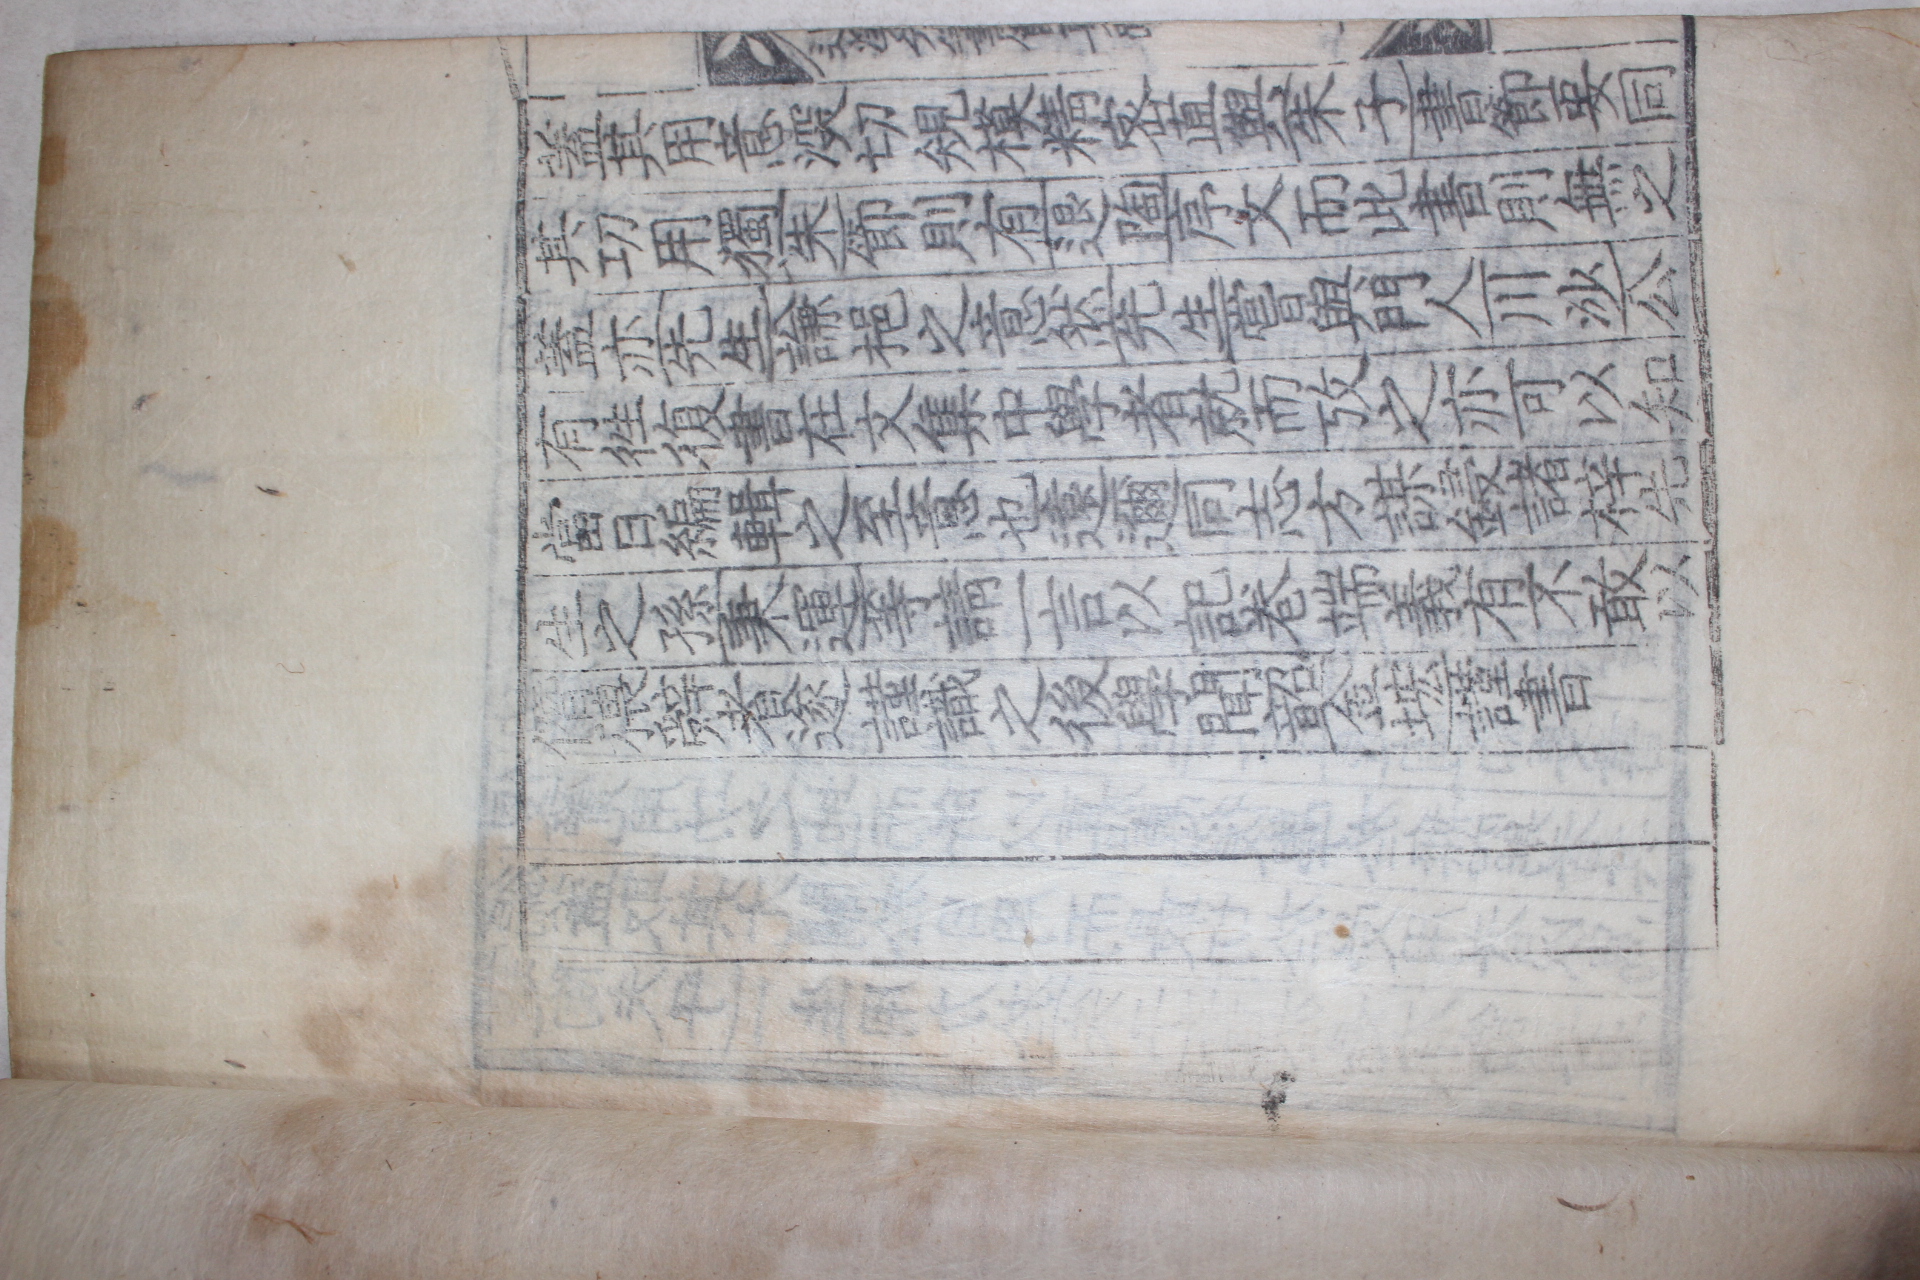 蓋其用意深切規模精密直與朱子書節要同
其功用獨朱節則有退陶序文而此書則無之
蓋亦先生謙挹之意然先生嘗與門人川沙公
有徃復書在文集中學者就而攷之亦可以知
當日編輯之至意也遠邇同志方謀鋟諸梓先
生之孫秉運等請一言以記卷端義有不敢以
僭猥辭者遂謹識之後學聞韶金㙆謹書